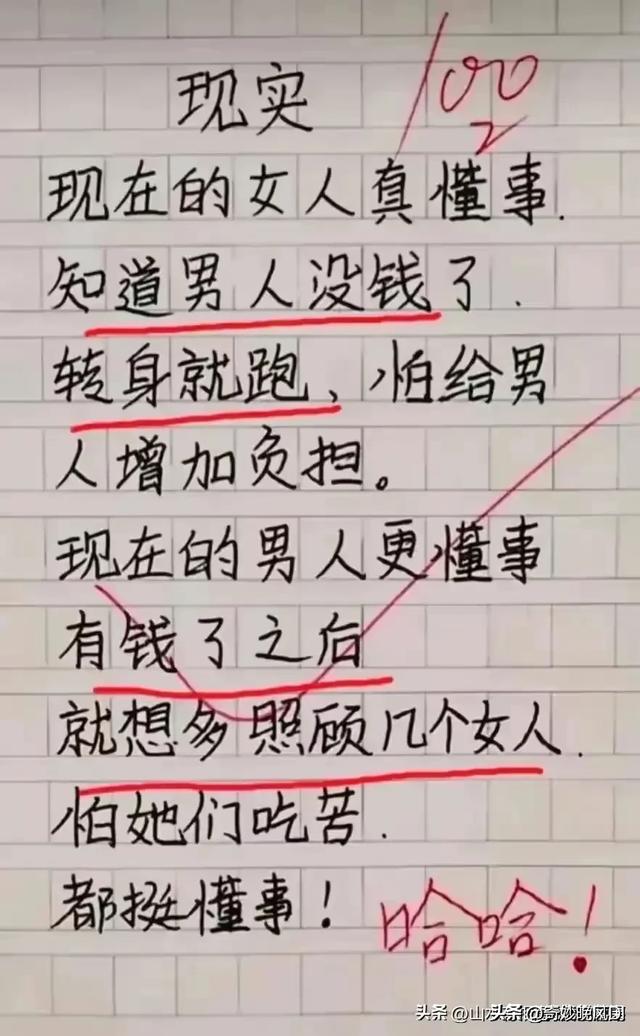 现实
100
现在的女人真懂事.
知道男人没钱了.
转身就跑、怕给男
人增加负担。
现在的男人更懂事
有钱了之后
就想多照顾几个女人.
怕她们吃苦.
都挺懂事！
哈哈！
头条 @山
头条 @奇妙晚风因